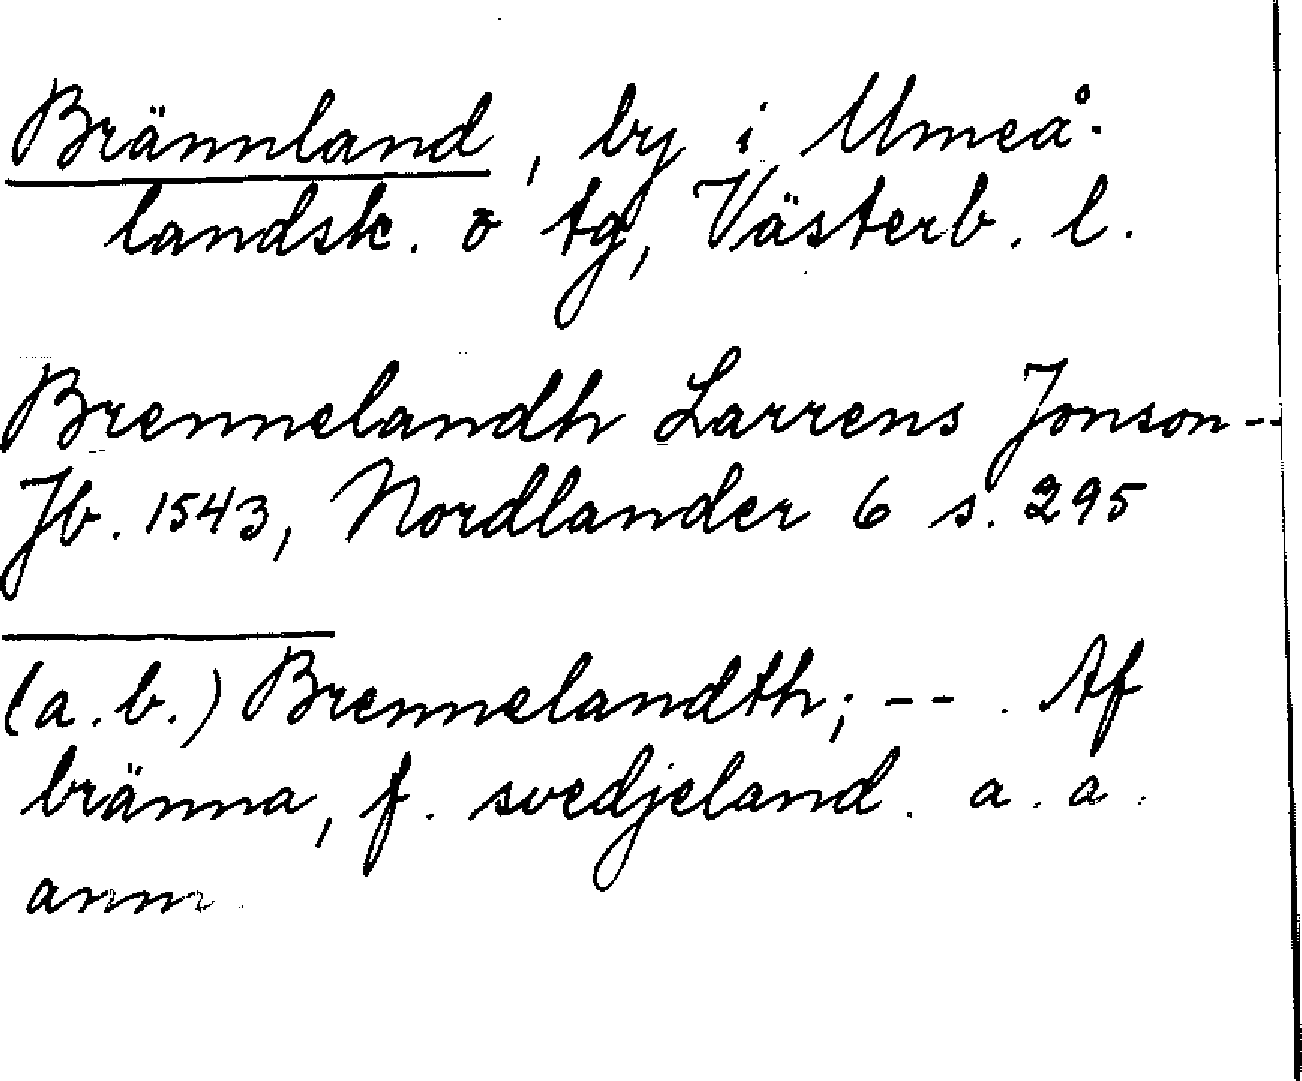 Brännland, by i Umeå.
landsk. o tg, Västerb. l.
Brennelandh Larrens Jonson --
Jb. 1543, Nordlander 6 s. 295
(a.b.) Brennelandth; -- . Af
bränna, f. svedjeland. a. a.
anm.